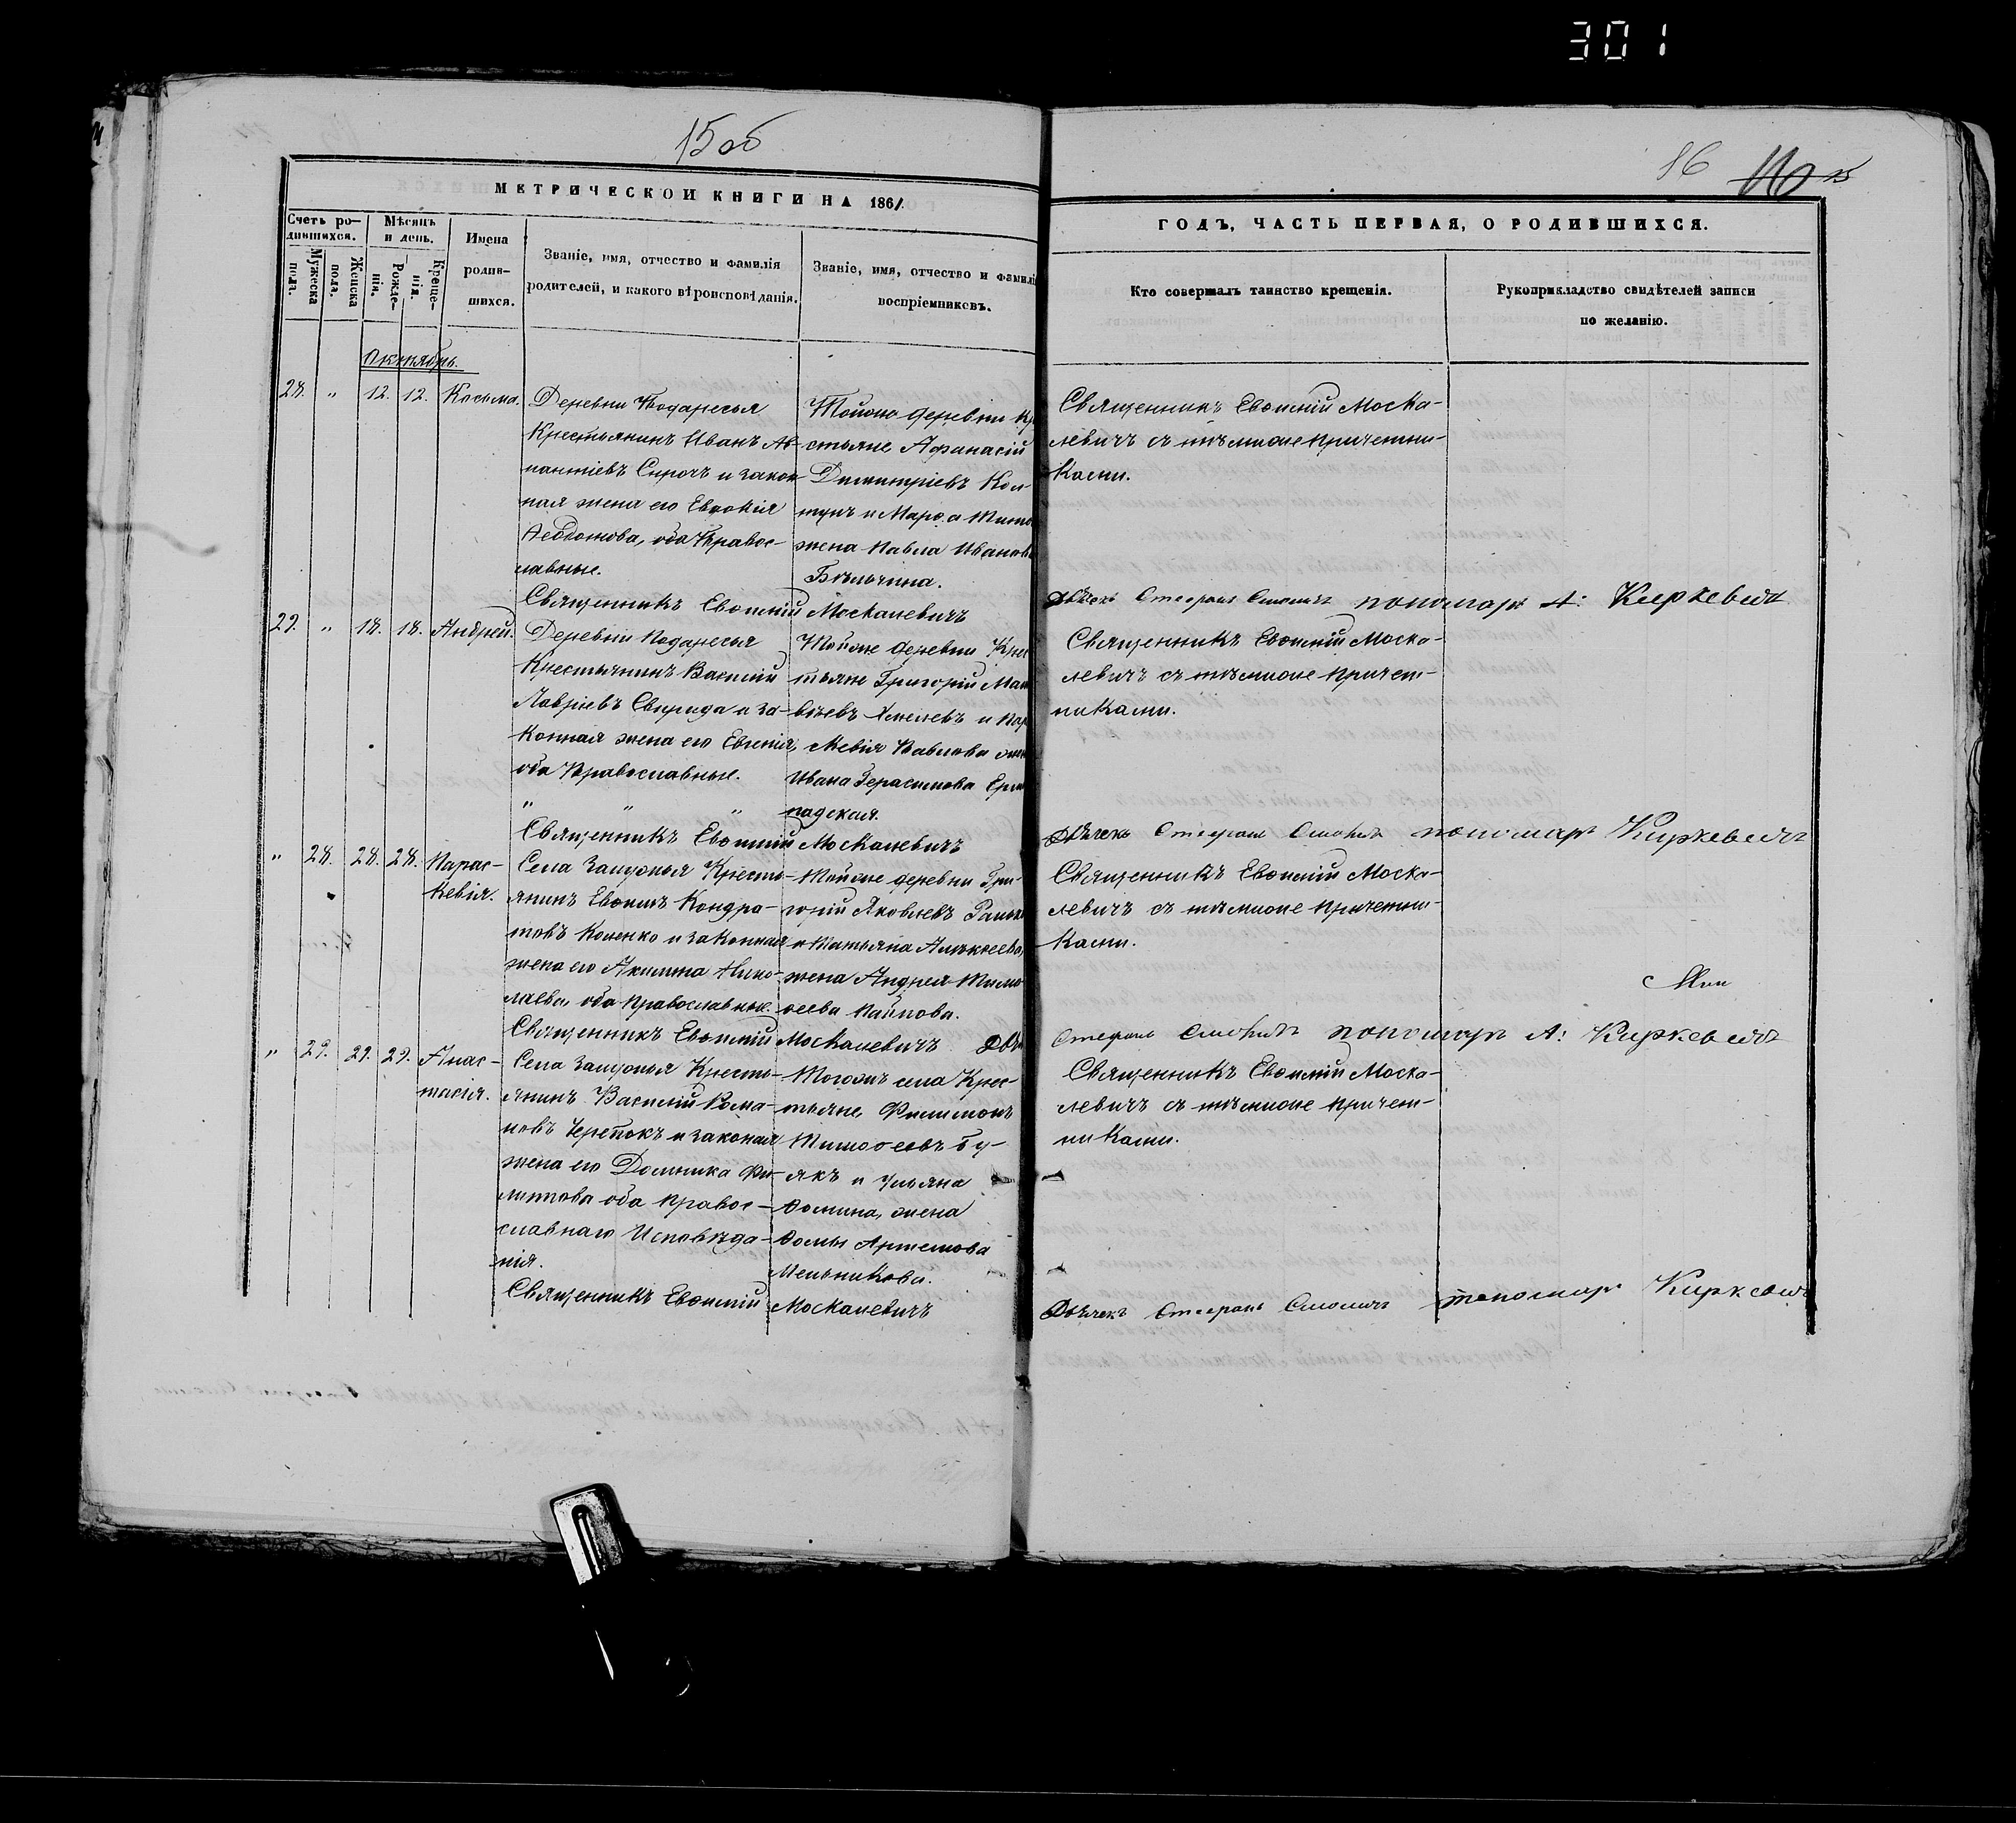 301
15об
16
МЕТРИЧЕСКОЙ КНИГИ НА 1861
ГОДЪ, ЧАСТЬ ПЕРВАЯ, О РОДИВШИХСЯ.
Счетъ ро-
дившихся.
Мужеска
пола.
Женска
пола.
Мѣсяцъ
и день.
Рожде-
нія.
Креще-
нія.
Имена
родив-
шихся.
Званіе, имя, отчество и фамилія
родителей, и какого вѣроисповѣданія.
Званіе, имя, отчество и фамилі
воспріемниковъ.
Кто совершалъ таинство крещенія.
Рукоприкладство свидѣтелей записи
по желанію.
Октябрь.
28. " 12. 12. Косьма.
Деревни Подаресья
Крестьянинъ Иванъ
Сирочъ и закон
ная жена его Евдокія
оба Правос-
лавные.
Тойже деревни Кр
стьяне Афанасій
Димитріевъ
и Марѳа
жена Павла Иванов
Бѣльчина.
Священникъ Евѳимій Моска-
левичъ съ тѣмиже причетни-
ками.
Священникъ Евѳимій Москалевичъ
Дьячекъ Стефанъ Смоличъ пономарь А: Киркевичъ
29. " 18. 18. Андрей.
Деревни Подаресья
Крестьянинъ Василій
Лавріевъ Свирида и за-
конная жена его Евгенія,
оба Православные.
" " "
Тойже деревни Крес
тьяне Григорій Мат
вѣевъ и Пар
кевія Павлова
Ивана Герасимова
падская.
Священникъ Евѳимій Моска-
левичъ съ тѣмиже причет-
никами.
Священникъ Евѳимій Москалевичъ
Дьячекъ Стефанъ Смоличъ пономарь Киркевичъ
" 28. 28. 28. Парас-
кевія.
Села Замужья Кресть-
янинъ Евѳимъ Кондра-
товъ Коленко и законная
жена его Акилина Нико-
лаева, оба православные.
Тойже деревни Гри-
горій Яковлевъ
и Татьяна Алексеева,
жена Андрея Тимо
ѳеева
Священникъ Евѳимій Моска-
левичъ съ тѣмиже причетни-
ками.
Священникъ Евѳимій Москалевичъ
Стефанъ Смоличъ пономарь А: Киркевичъ
" 29. 29. 29. Анас-
тасія.
Села Замужья Кресть-
янинъ Василій Рома-
новъ Черепокъ и законая
жена его Домника Фи-
липова оба правос-
славнаго исповѣда-
нія.
Тогожъ села Крес-
тьяне Филимонъ
Тимоѳеевъ Бу-
якъ и Ульяна
Ѳомина, жена
Ѳомы Артемова
Мельникова.
Священникъ Евѳимій Моска-
левичъ съ тѣмиже причет-
никами.
Священникъ Евѳимій Москалевичъ
Дьячекъ Стефанъ Смоличъ пономарь Киркевичъ